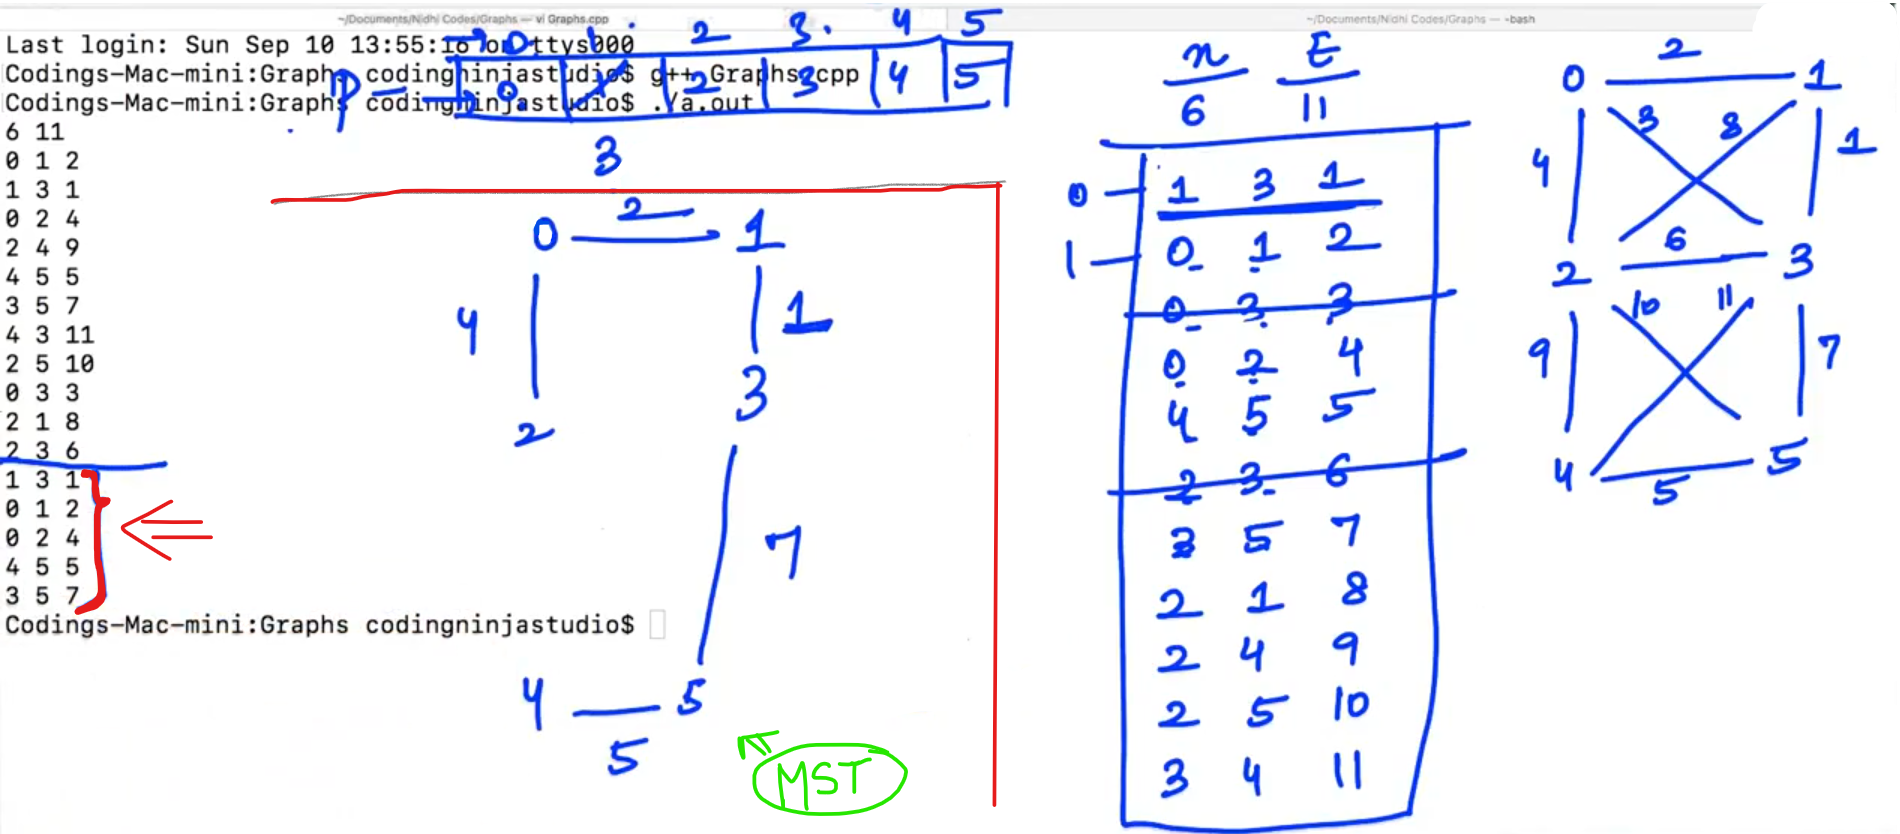 ~/Documents/Nidhi Codes/Graphs — vi Graphs.cpp
~/Documents/Nidhi Codes/Graphs — -bash
Last login: Sun Sep 10 13:55:16 on ttys000
Codings-Mac-mini:Graphs codingninjastudio$ g++ Graphs.cpp
Codings-Mac-mini:Graphs codingninjastudio$ ./a.out
6 11
0 1 2
1 3 1
0 2 4
2 4 9
4 5 5
3 5 7
4 3 11
2 5 10
0 3 3
2 1 8
2 3 6
1 3 1
0 1 2
0 2 4
4 5 5
3 5 7
Codings-Mac-mini:Graphs codingninjastudio$
0 1 2 3 4 5
P 0 1 2 3 4 5
3
0 2 1
4 1
2 3
7
4 5
5
MST
n E
6 11
0 1 3 1
1 0 1 2
0 3 3
0 2 4
4 5 5
2 3 6
3 5 7
2 1 8
2 4 9
2 5 10
3 4 11
0 2 1
4 3 8 1
2 6 3
9 10 11 7
4 5 5